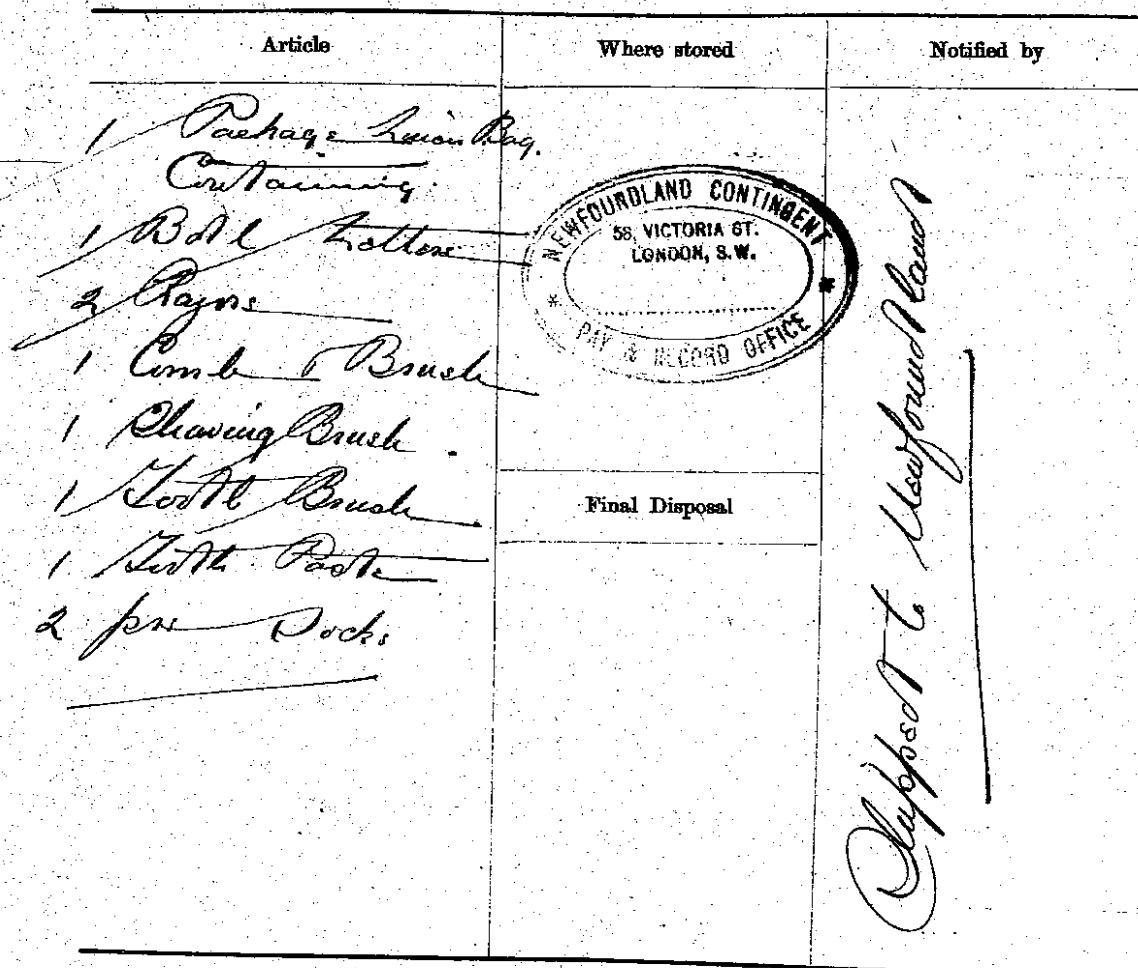 Article
Where stored
Notified by
1 Package Linen Bag.
Containing
1 Bottl
2 Razors
1 Comb & Brush
1 Shaving Brush.
1 Tooth Brush
1 Tooth Paste
2 prs Socks
NEWFOUNDLAND CONTINGENT
58, VICTORIA ST.
LONDON, S.W.
* PAY & RECORD OFFICE *
Final Disposal
Shipped to Newfoundland